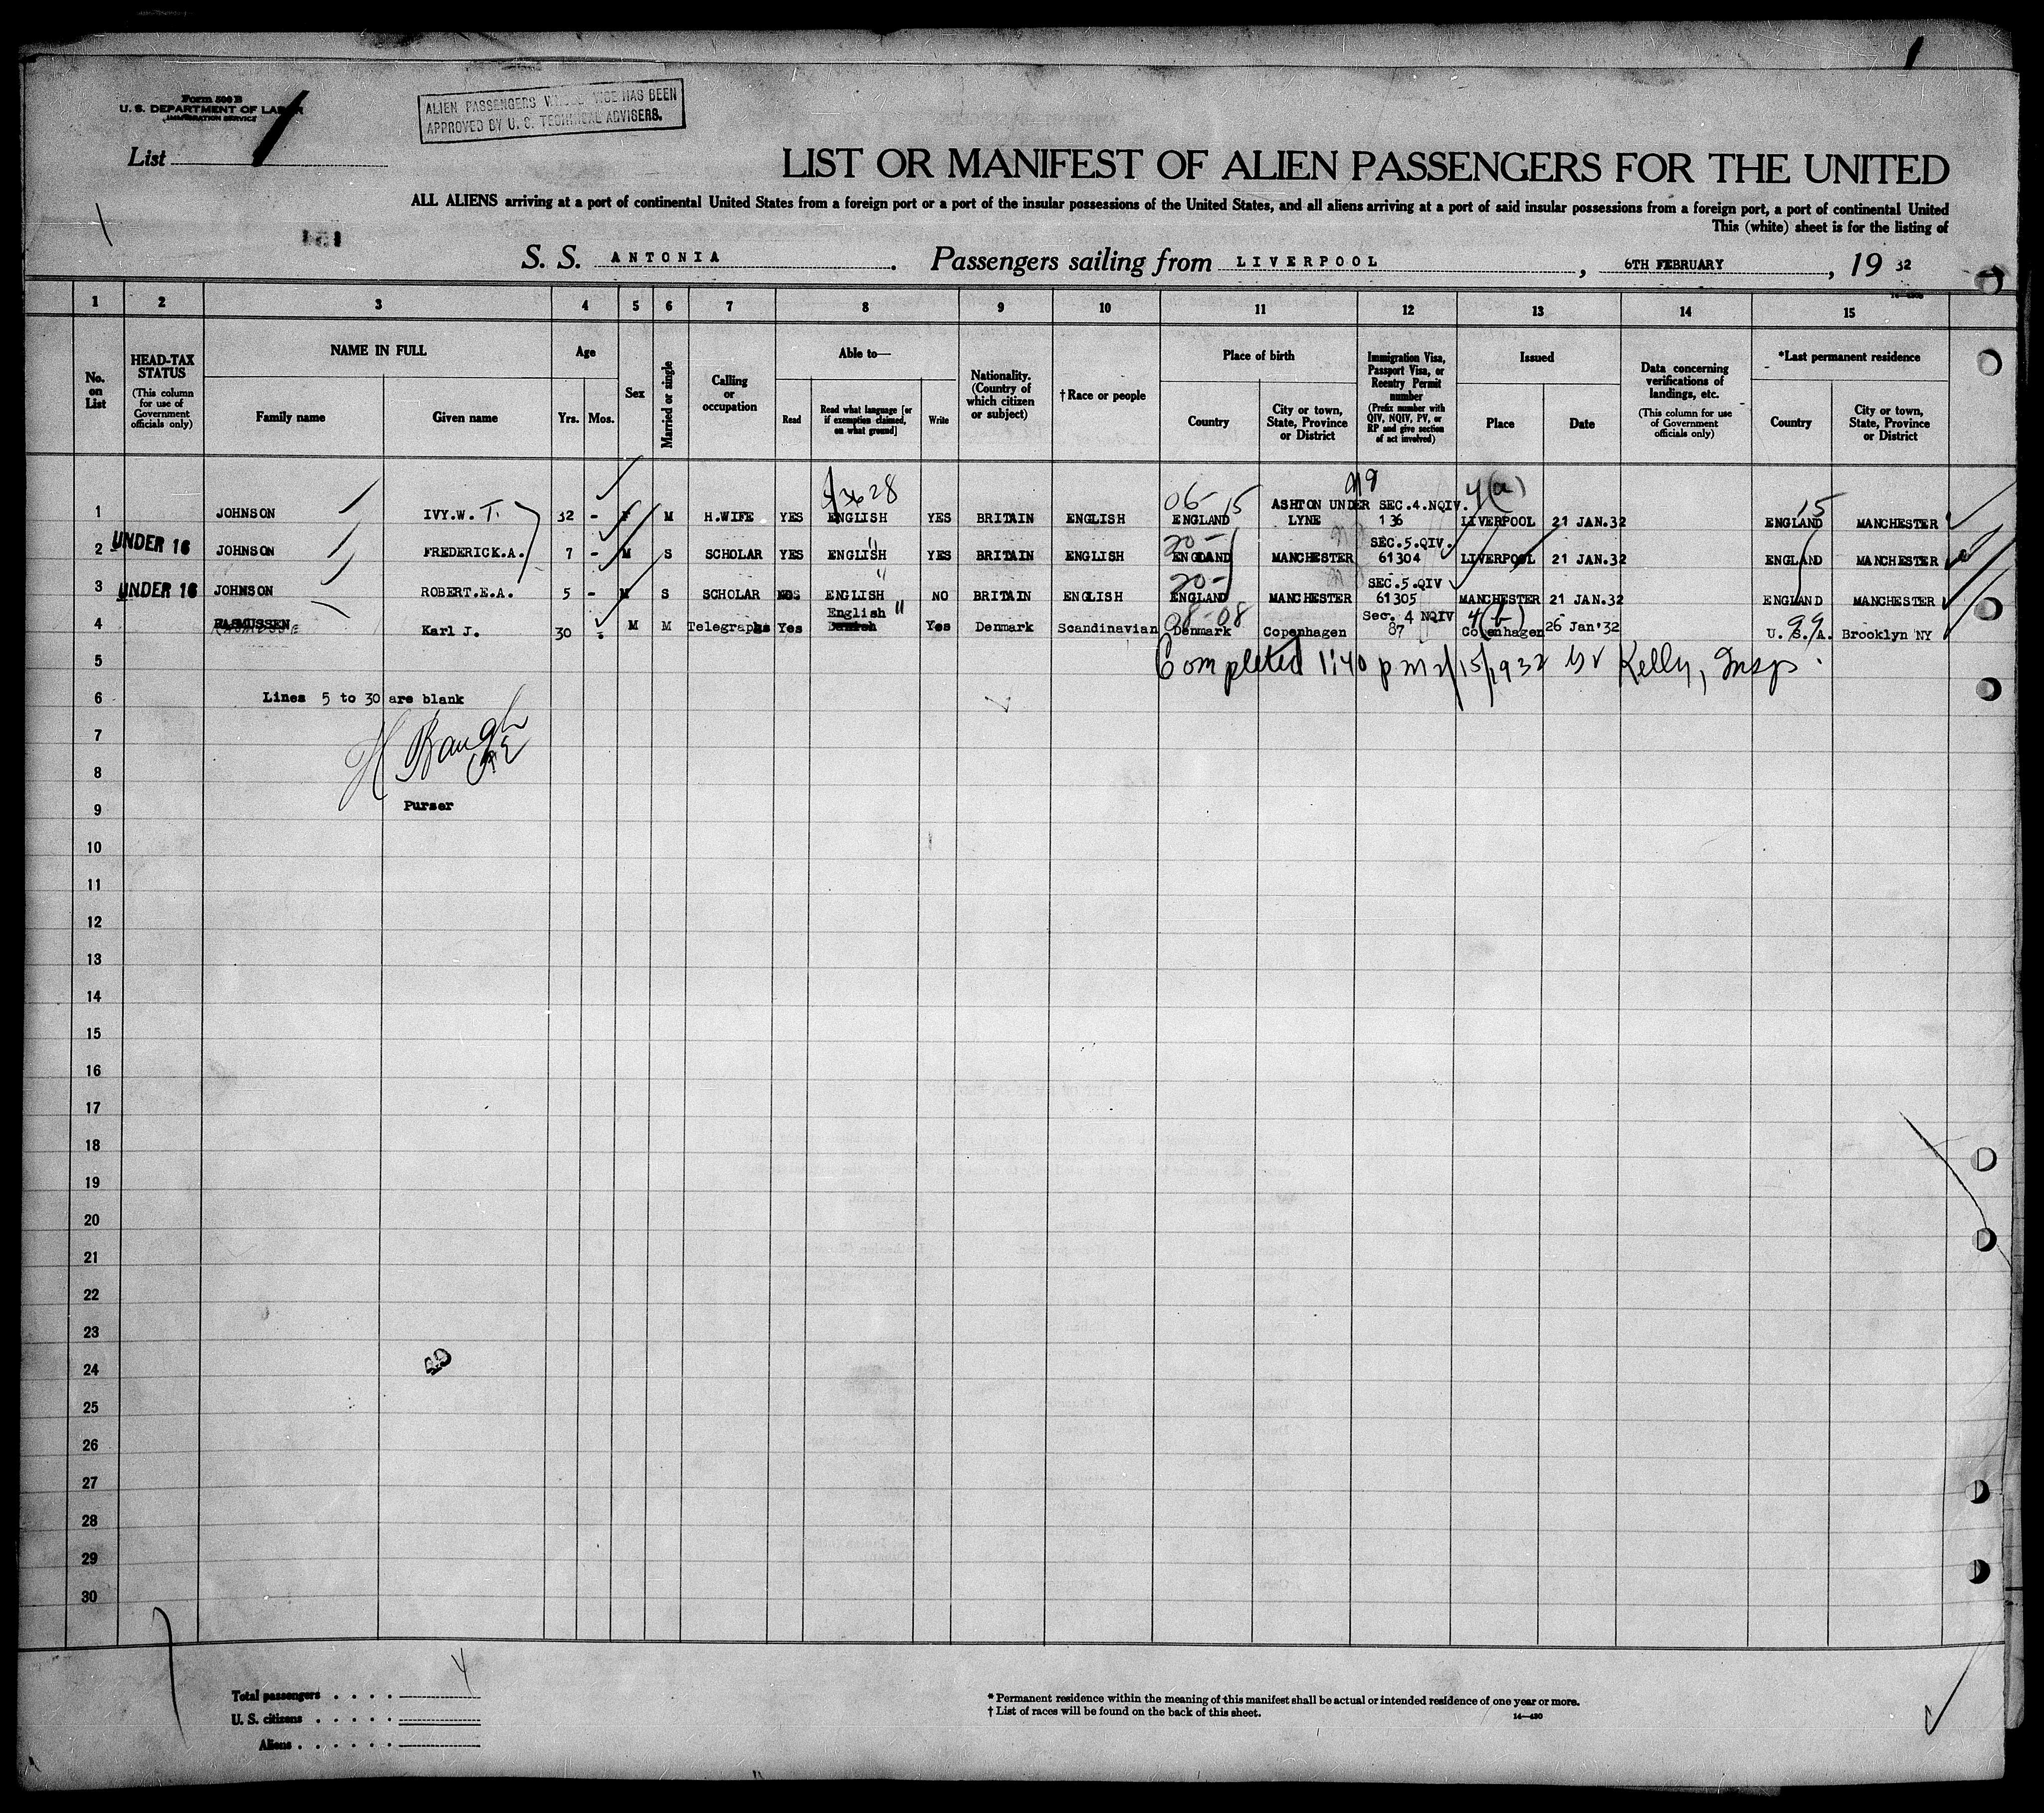 Form 500 B
U. S. DEPARTMENT OF LABOR
IMMIGRATION SERVICE
List 1
ALIEN PASSENGERS WHOSE VISE HAS BEEN
APPROVED BY U. S. TECHNICAL ADVISERS.
LIST OR MANIFEST OF ALIEN PASSENGERS FOR THE UNITED
ALL ALIENS arriving at a port of continental United States from a foreign port or a port of the insular possessions of the United States, and all aliens arriving at a port of said insular possessions from a foreign port, a port of continental United
This (white) sheet is for the listing of
S. S. ANTONIA. Passengers sailing from LIVERPOOL, 6TH FEBRUARY, 19 32
1 2 3 4 5 6 7 8 9 10 11 12 13 14 15
No. on List
HEAD-TAX STATUS
(This column for use of Government officials only)
NAME IN FULL
Family name
Given name
Age
Yrs. Mos.
Sex
Married or single
Calling or occupation
Able to—
Read
Read what language [or if exemption claimed, on what ground]
Write
Nationality. (Country of which citizen or subject)
† Race or people
Place of birth
Country
City or town, State, Province or District
Immigration Visa, Passport Visa, or Reentry Permit number
(Prefix number with QIV, NQIV, PV, or RP and give section of act involved)
Issued
Place
Date
Data concerning verifications of landings, etc.
(This column for use of Government officials only)
*Last permanent residence
Country
City or town, State, Province or District
1 JOHNSON IVY.W. T. 32 - F M H.WIFE YES ENGLISH YES BRITAIN ENGLISH ENGLAND ASHTON UNDER LYNE SEC.4.NQIV. 136 4(a) LIVERPOOL 21 JAN.32 ENGLAND MANCHESTER
2 UNDER 16 JOHNSON FREDERICK.A. 7 - M S SCHOLAR YES ENGLISH YES BRITAIN ENGLISH ENGLAND MANCHESTER SEC.5.QIV. 61304 LIVERPOOL 21 JAN.32 ENGLAND MANCHESTER
3 UNDER 16 JOHNSON ROBERT.E.A. 5 - M S SCHOLAR ENGLISH NO BRITAIN ENGLISH ENGLAND MANCHESTER SEC.5.QIV 61305 MANCHESTER 21 JAN.32 ENGLAND MANCHESTER
4 RASMUSSEN Karl J. 30 - M M Telegraphs Yes English Danish Yes Denmark Scandinavian Denmark Copenhagen Sec. 4 NQIV 87 4(b) Copenhagen 26 Jan'32 U. S. A. Brooklyn NY
5 Completed 1:40 pm 2/15/1932 Kelly, Insp.
6 Lines 5 to 30 are blank
7
8
9 Purser
10
11
12
13
14
15
16
17
18
19
20
21
22
23
24
25
26
27
28
29
30
Total passengers . . . . 4
U. S. citizens . . . . .
Aliens . . . . . .
* Permanent residence within the meaning of this manifest shall be actual or intended residence of one year or more.
† List of races will be found on the back of this sheet.
14—430